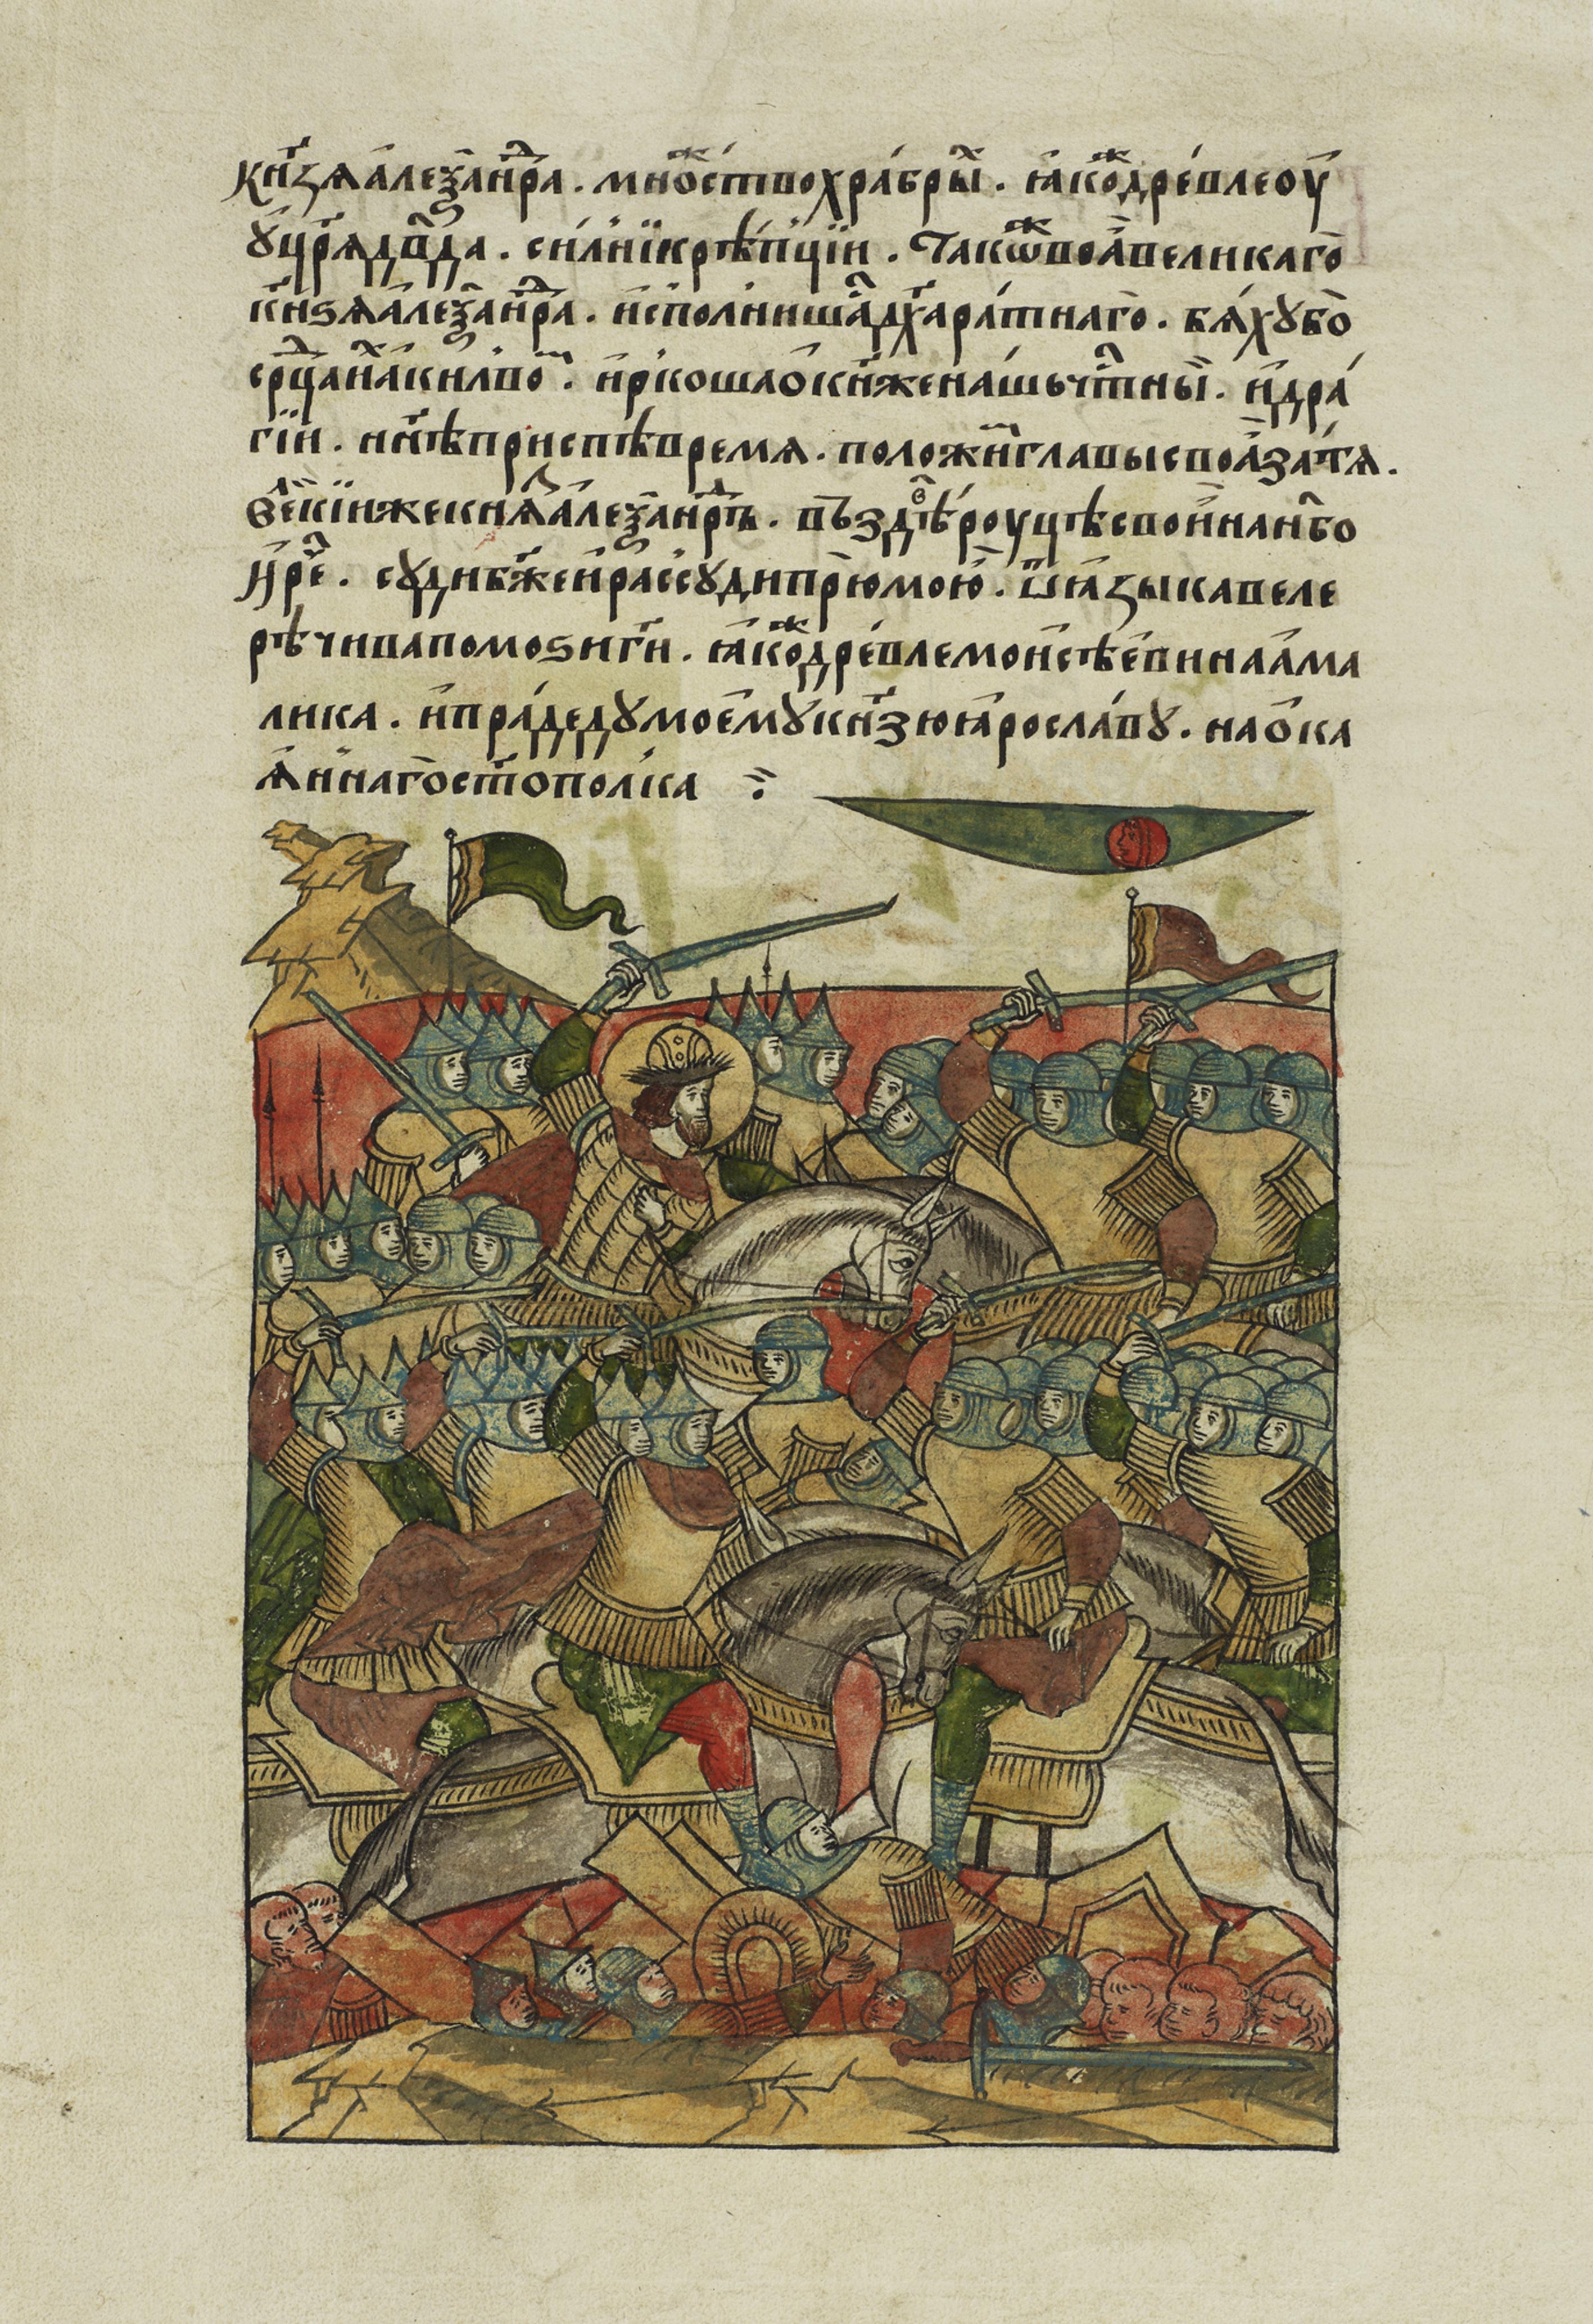 кн҃зѧ алеѯан҃дра . мно́жство хра́брыⷯ . ꙗ҆́коже дре́вле оу҆
ꙋ҆ цр҃ѧ дв҃да . си́лнїи крѣ́пцїи . Такѡж во а҆ великаго
кн҃ѕѧ а҆леѯан҃дра . и҆спо́лнишасѧ дх҃а ра́тнаго . бѧ́хꙋ бо
срⷣца и҆́хъ а҆́ки лво́мъ . и҆ рко́ша ѻ҆ кн҃же на́шь чтⷭ҇ныи . и҆ дра
гїи . нн҃ѣ приспѣ вре́мѧ . положи́ти главы своѧ҆ за тѧ .
вели́кїи же кн҃ѧ а҆леѯан҃дръ . въздѣ́въ роуцѣ свои҆ на нб҃о
и҆ реⷱ҇ . сꙋди бж҃е и҆ рассꙋди прю мою҆ . ѿ ꙗ҆зыка веле
рѣ́чива помоѕи гⷭ҇и . ꙗ҆́коже дре́вле мои҆сѣе҆ви на а҆ма
лика . и҆ пра́дедꙋ моемꙋ҆ кн҃зю ꙗ҆росла́вꙋ . на ѻ҆ка
ѧ҆ннаго ст҃ополка :~